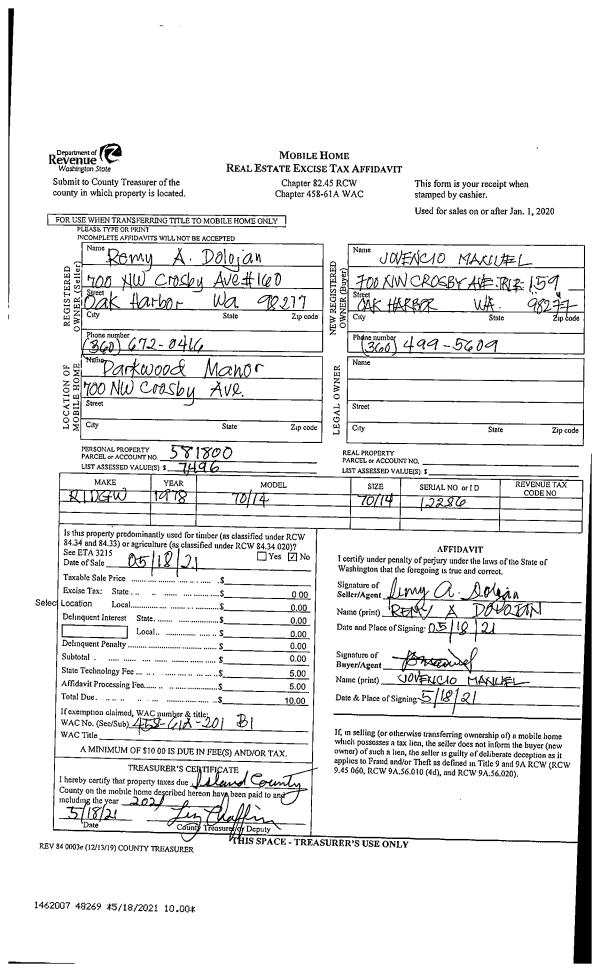 Department of
Revenue
Washington State
MOBILE HOME
REAL ESTATE EXCISE TAX AFFIDAVIT
Submit to County Treasurer of the
county in which property is located.
Chapter 82.45 RCW
Chapter 458-61A WAC
This form is your receipt when
stamped by cashier.
Used for sales on or after Jan. 1, 2020
FOR USE WHEN TRANSFERRING TITLE TO MOBILE HOME ONLY
PLEASE TYPE OR PRINT
INCOMPLETE AFFIDAVITS WILL NOT BE ACCEPTED
REGISTERED
OWNER (Seller)
Name Remy A. Dolojan
700 NW Crosby Ave #160
Street
Oak Harbor Wa 98277
City State Zip code
Phone number
(360) 672-0416
NEW REGISTERED
OWNER (Buyer)
Name JOVENCIO MANUEL
700 NW CROSBY AVE 159
Street
OAK HARBOR WA. 98277
City State Zip code
Phone number
(360) 499-5609
LOCATION OF
MOBILE HOME
Name Parkwood Manor
700 NW Crosby Ave.
Street
City State Zip code
LEGAL OWNER
Name
Street
City State Zip code
PERSONAL PROPERTY
PARCEL or ACCOUNT NO. 581800
LIST ASSESSED VALUE(S) $ 7496
REAL PROPERTY
PARCEL or ACCOUNT NO.
LIST ASSESSED VALUE(S) $
MAKE YEAR MODEL SIZE SERIAL NO or ID REVENUE TAX CODE NO
RIDGW 1978 70/14 70/14 12286
Is this property predominantly used for timber (as classified under RCW
84.34 and 84.33) or agriculture (as classified under RCW 84.34 020)?
See ETA 3215 Yes ✓ No
Date of Sale 05/18/21
Taxable Sale Price $
Excise Tax: State $ 0 00
Select Location Local $ 0.00
Delinquent Interest State $ 0.00
Local $ 0.00
Delinquent Penalty $ 0.00
Subtotal $ 0.00
State Technology Fee $ 5.00
Affidavit Processing Fee $ 5.00
Total Due $ 10.00
If exemption claimed, WAC number & title:
WAC No. (Sec/Sub) 458-61A-201 B1
WAC Title
A MINIMUM OF $10 00 IS DUE IN FEE(S) AND/OR TAX.
TREASURER'S CERTIFICATE
I hereby certify that property taxes due Island County
County on the mobile home described hereon have been paid to and
including the year 2021
5/18/21 Liz Chaffin
Date County Treasurer or Deputy
AFFIDAVIT
I certify under penalty of perjury under the laws of the State of
Washington that the foregoing is true and correct.
Signature of
Seller/Agent Remy A. Dolojan
Name (print) REMY A DOLOJAN
Date and Place of Signing: 05/18/21
Signature of
Buyer/Agent
Name (print) JOVENCIO MANUEL
Date & Place of Signing 5/18/21
If, in selling (or otherwise transferring ownership of) a mobile home
which possesses a tax lien, the seller does not inform the buyer (new
owner) of such a lien, the seller is guilty of deliberate deception as it
applies to Fraud and/or Theft as defined in Title 9 and 9A RCW (RCW
9.45 060, RCW 9A.56.010 (4d), and RCW 9A.56.020).
THIS SPACE - TREASURER'S USE ONLY
REV 84 0003e (12/13/19) COUNTY TREASURER
1462007 48269 *5/18/2021 10.00*